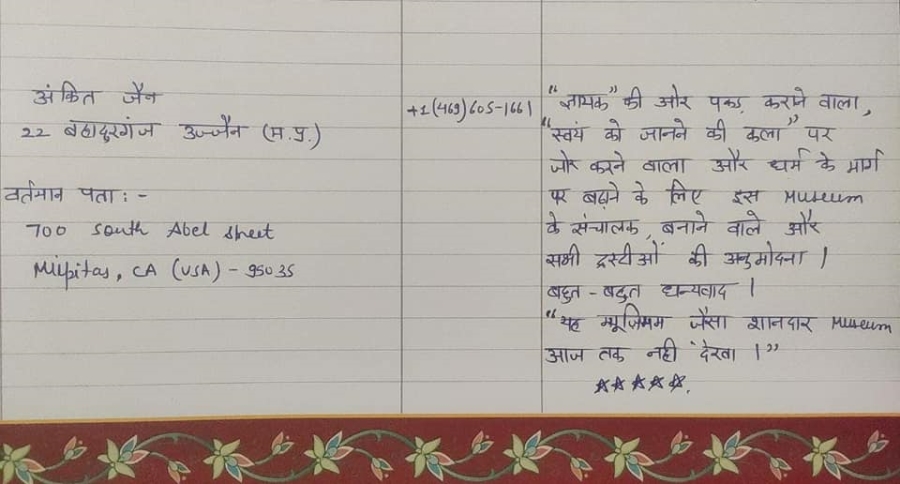 अंकित जैन
22 बहादुरगंज उज्जैन (म.प्र.)
वर्तमान पता : -
700 South Abel street
Milpitas, CA (USA) - 95035
+1 (469) 605-1661
"ज्ञायक" की ओर पकड़ कराने वाला,
"स्वयं को जानने की कला" पर
जोर करने वाला और धर्म के मार्ग
पर बढ़ाने के लिए इस Museum
के संचालक, बनाने वाले और
सभी ट्रस्टीओं की अनुमोदना |
बहुत - बहुत धन्यवाद |
"यह म्यूजियम जैसा शानदार Museum
आज तक नहीं देखा |"
☆☆☆☆☆.